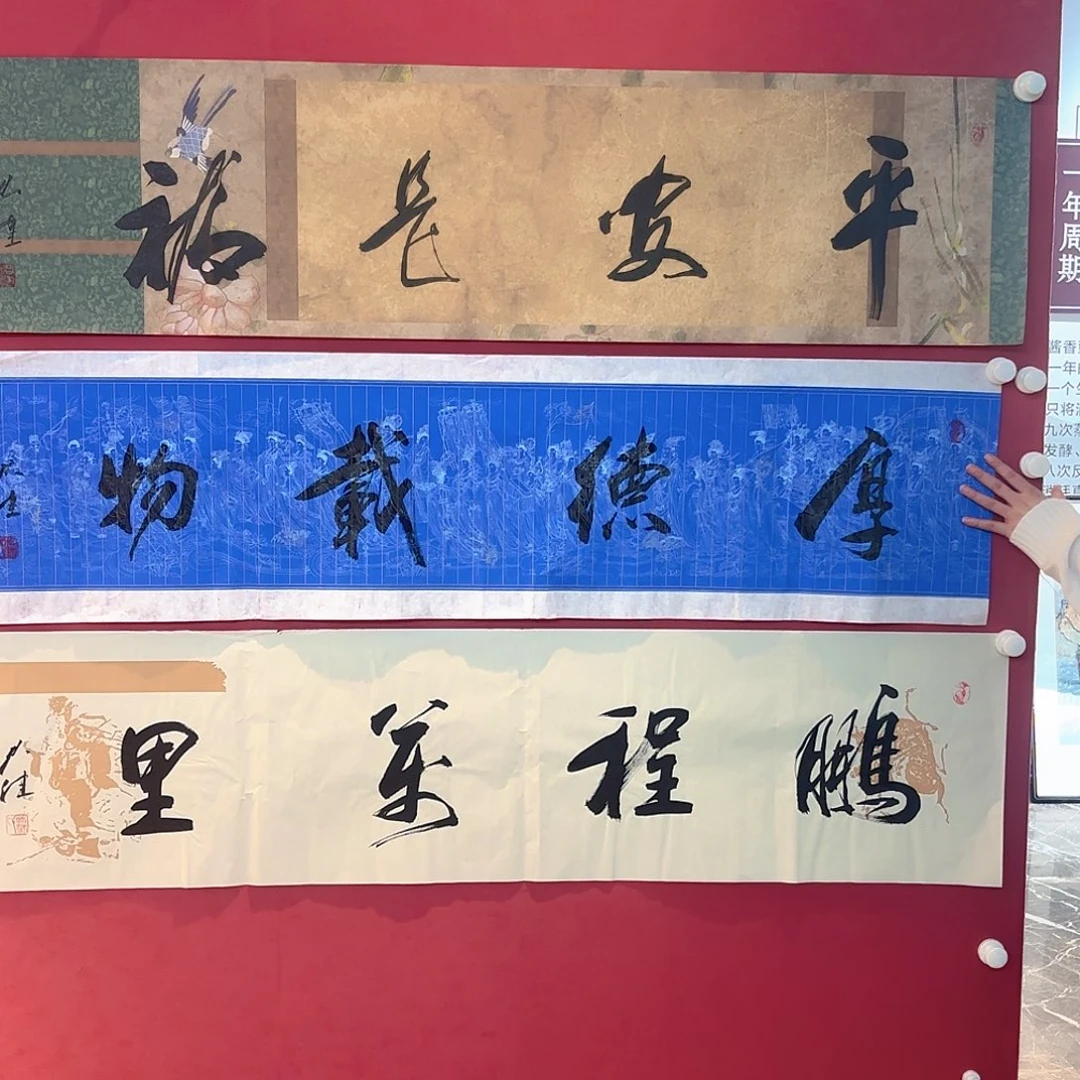 平安是福
厚德载物
鹏程萬里
一年周期
酱香
一年
一个
只将
九次
发酵、
八次反